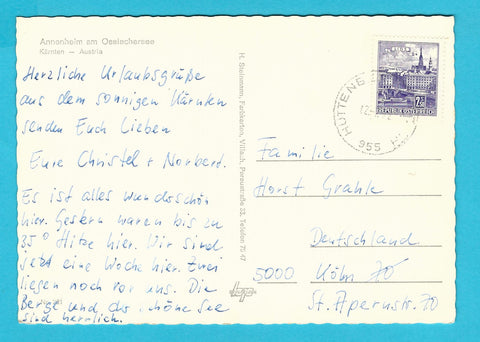 Annenheim am Ossiachersee
Kärnten — Austria
Herzliche Urlaubsgrüße
aus dem sonnigen Kärnten
senden Euch Lieben
Eure Christel + Norbert.
Es ist alles wunderschön
hier. Gestern waren bis zu
35° Hitze hier. Wir sind
jetzt eine Woche hier. Zwei
liegen noch vor uns. Die
Berge und der schöne See
sind herrlich.
H. Steinmann, Farbkarten, Villach, Peraustraße 33, Telefon 70 47
REPUBLIK ÖSTERREICH
955
Familie
Horst Grahle
Deutschland
5000 Köln 70
St. Apernstr. 70